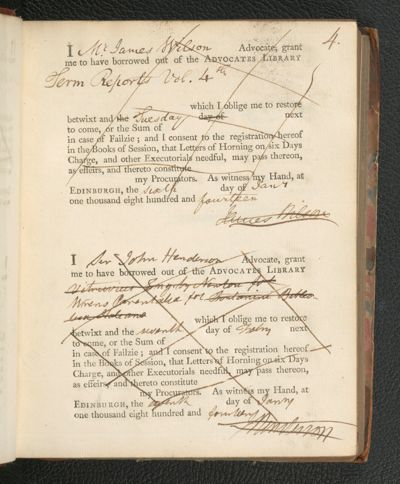 4.
I Mr. James Wilson Advocate, grant
me to have borrowed out of the ADVOCATES LIBRARY
Term Reports Vol. 4th
which I oblige me to restore
betwixt and the Tuesday day of next
to come, or the Sum of
in case of Failzie; and I consent to the registration hereof
in the Books of Session, that Letters of Horning on six Days
Charge, and other Executorials needful, may pass thereon,
as effeirs, and thereto constitute
my Procurators. As witness my Hand, at
EDINBURGH, the sixth day of Jany
one thousand eight hundred and fourteen
James Wilson
I Sir John Henderson Advocate, grant
me to have borrowed out of the ADVOCATES LIBRARY
Vitruvius by Newton
Wrens Parentalia
which I oblige me to restore
betwixt and the seventh day of Febry next
to come, or the Sum of
in case of Failzie; and I consent to the registration hereof
in the Books of Session, that Letters of Horning on six Days
Charge, and other Executorials needful, may pass thereon,
as effeirs, and thereto constitute
my Procurators. As witness my Hand, at
EDINBURGH, the day of Janry
one thousand eight hundred and fourteen
Henderson